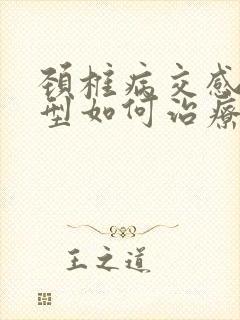 颈椎病交感
型如何治療
王之道